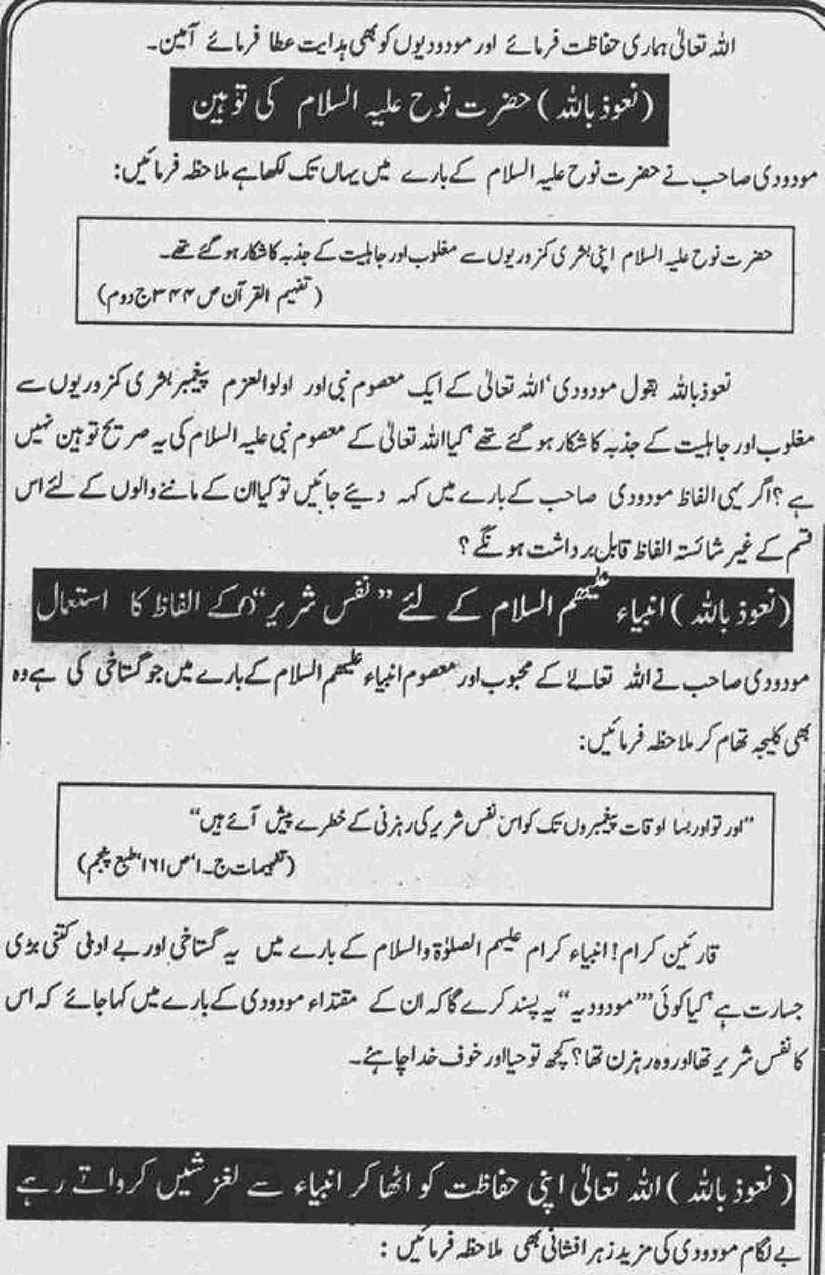 اللہ تعالیٰ ہماری حفاظت فرمائے اور مودودیوں کو بھی ہدایت عطا فرمائے آمین۔
(نعوذ باللہ) حضرت نوح علیہ السلام کی توہین
مودودی صاحب نے حضرت نوح علیہ السلام کے بارے میں یہاں تک لکھا ہے ملاحظہ فرمائیں:
حضرت نوح علیہ السلام اپنی بشری کمزوریوں سے مغلوب اور جاہلیت کے جذبہ کا شکار ہو گئے تھے۔
(تفہیم القرآن ص ۳۴۴ ج دوم)
نعوذ باللہ بقول مودودی‘ اللہ تعالیٰ کے ایک معصوم نبی اور اولوالعزم پیغمبر بشری کمزوریوں سے
مغلوب اور جاہلیت کے جذبہ کا شکار ہو گئے تھے‘ کیا اللہ تعالیٰ کے معصوم نبی علیہ السلام کی یہ صریح توہین نہیں
ہے؟ اگر یہی الفاظ مودودی صاحب کے بارے میں کہہ دیئے جائیں تو کیا ان کے ماننے والوں کے لئے اس
قسم کے غیر شائستہ الفاظ قابل برداشت ہونگے؟
(نعوذ باللہ) انبیاء علیھم السلام کے لئے ”نفس شریر“ کے الفاظ کا استعمال
مودودی صاحب نے اللہ تعالیٰ کے محبوب اور معصوم انبیاء علیھم السلام کے بارے میں جو گستاخی کی ہے وہ
بھی کلیجہ تھام کر ملاحظہ فرمائیں:
”اور تو اور بسا اوقات پیغمبروں تک کو اس نفس شریر کی رہزنی کے خطرے پیش آئے ہیں“
(تفہیمات ج۔۱‘ ص ۱۶۱‘ طبع پنجم)
قارئین کرام! انبیاء کرام علیہم الصلوٰۃ والسلام کے بارے میں یہ گستاخی اور بے ادبی کتنی بڑی
جسارت ہے‘ کیا کوئی ”’مودودیہ“ یہ پسند کرے گا کہ ان کے مقتداء مودودی کے بارے میں کہا جائے کہ اس
کا نفس شریر تھا اور وہ رہزن تھا؟ کچھ تو حیا اور خوف خدا چاہئے۔
(نعوذ باللہ) اللہ تعالیٰ اپنی حفاظت کو اٹھا کر انبیاء سے لغزشیں کرواتے رہے
بے لگام مودودی کی مزید زہر افشانی بھی ملاحظہ فرمائیں: